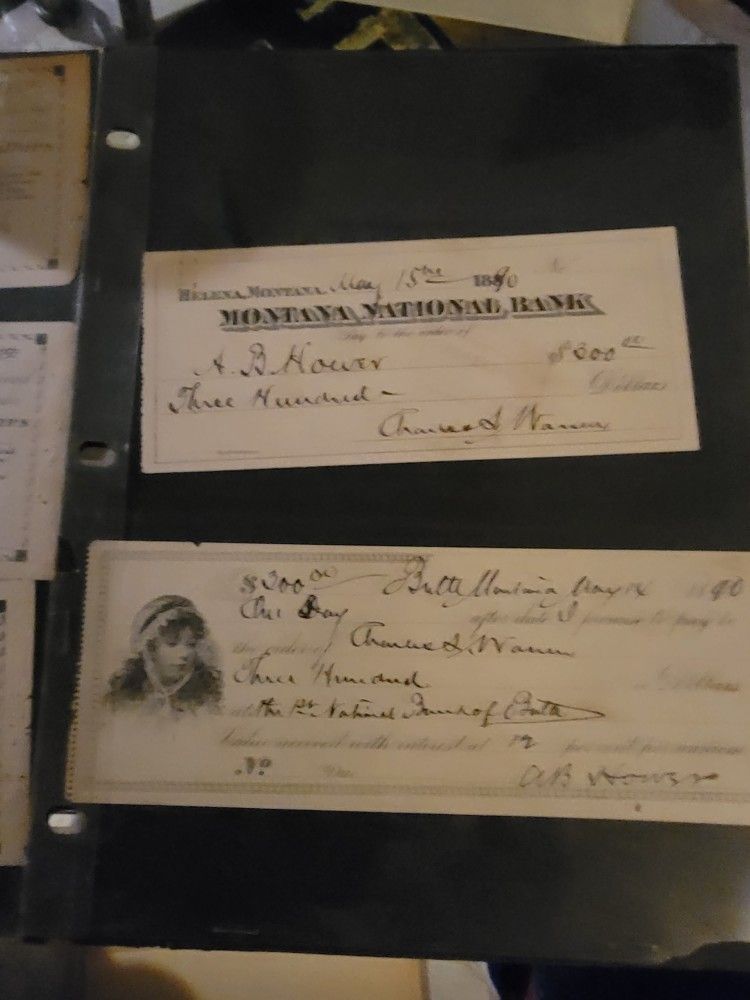 HELENA, MONTANA, May 15 1890
MONTANA NATIONAL BANK
Pay to the order of
A. B. Hower $300 00
Three Hundred - Dollars
Charles S. Warren
$300 00 Butte Montana May 14 1890
One Day after date I promise to pay to
the order of Charles S. Warren
Three Hundred Dollars
at the 1st National Bank of Butte
Value received with interest at per cent per annum
No. Due
A B Hower